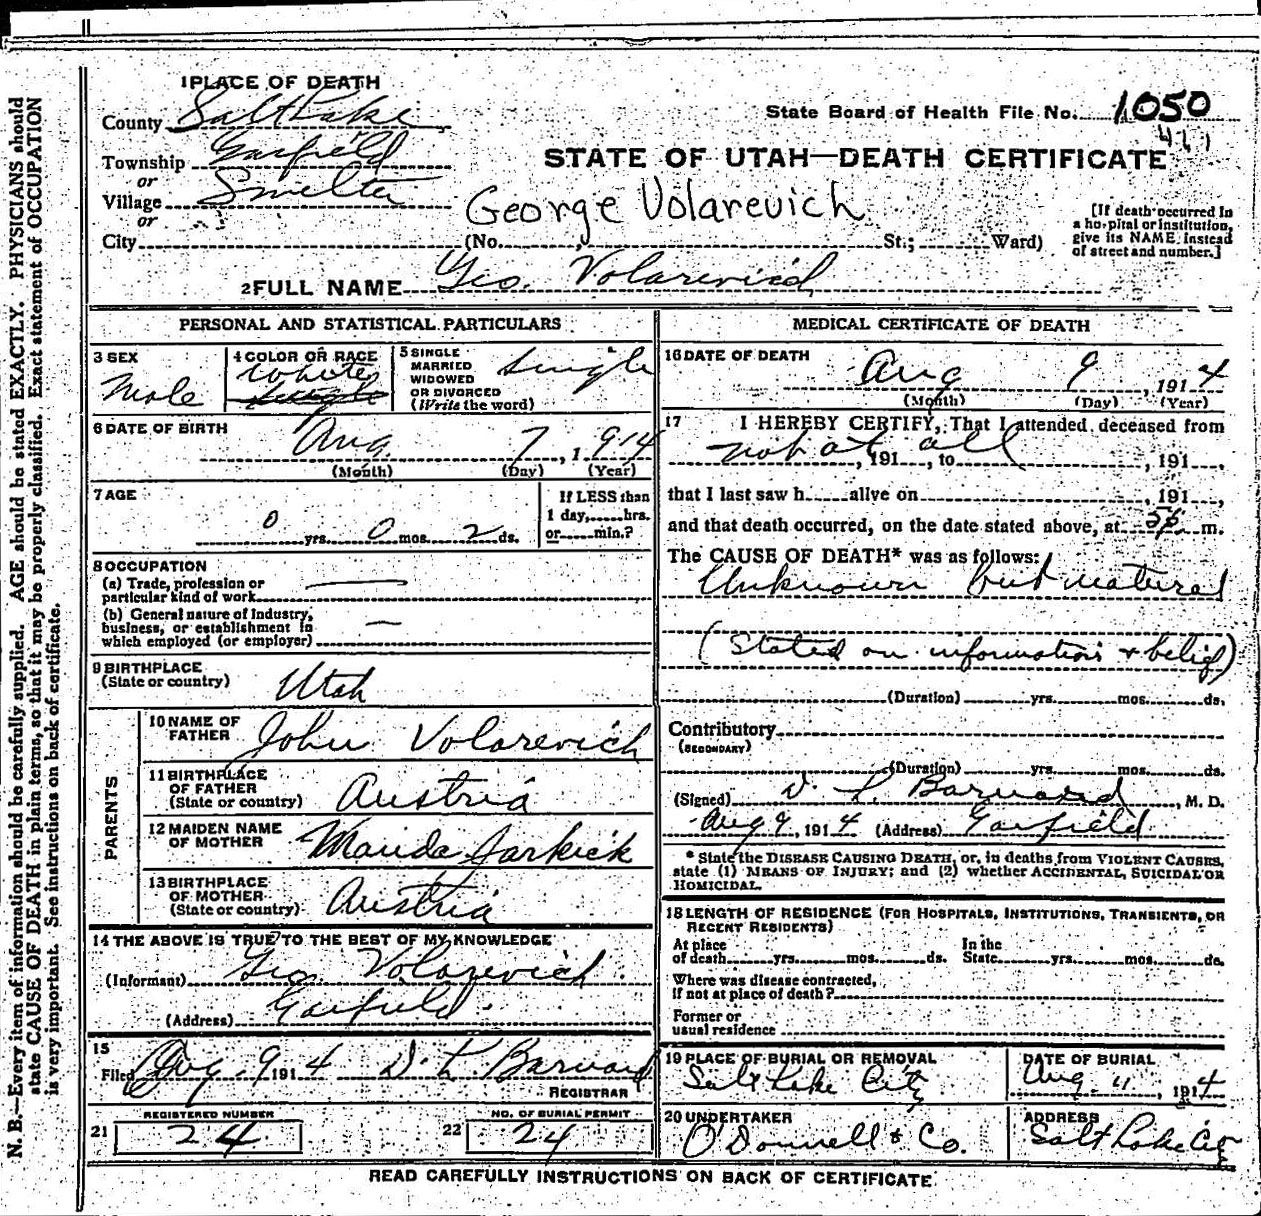 1 PLACE OF DEATH
County Salt Lake
State Board of Health File No. 1050
461
Township Garfield
STATE OF UTAH—DEATH CERTIFICATE
or
Village Smelter
or
George Volarevich
City (No. St.; Ward)
[If death occurred in
a hospital or institution,
give its NAME instead
of street and number.]
2 FULL NAME Geo. Volarevich
PERSONAL AND STATISTICAL PARTICULARS
3 SEX
Male
4 COLOR OR RACE
White
Single
5 SINGLE
MARRIED
WIDOWED
OR DIVORCED
(Write the word)
Single
6 DATE OF BIRTH
Aug. 7, 1914
(Month) (Day) (Year)
7 AGE
0 yrs. 0 mos. 2 ds.
If LESS than
1 day, hrs.
or min.?
8 OCCUPATION
(a) Trade, profession or
particular kind of work —
(b) General nature of Industry,
business, or establishment in
which employed (or employer) —
9 BIRTHPLACE
(State or country) Utah
PARENTS
10 NAME OF
FATHER John Volarevich
11 BIRTHPLACE
OF FATHER
(State or country) Austria
12 MAIDEN NAME
OF MOTHER Manda Jarkick
13 BIRTHPLACE
OF MOTHER
(State or country) Austria
14 THE ABOVE IS TRUE TO THE BEST OF MY KNOWLEDGE
(Informant) Geo. Volarevich
(Address) Garfield.
15
Filed Aug. 9 1914 D. L. Barnard
REGISTRAR
REGISTERED NUMBER
21 24
NO. OF BURIAL PERMIT
22 24
MEDICAL CERTIFICATE OF DEATH
16 DATE OF DEATH
Aug 9, 1914
(Month) (Day) (Year)
17 I HEREBY CERTIFY, That I attended deceased from
not at all, 191 , to , 191 ,
that I last saw h alive on , 191 ,
and that death occurred, on the date stated above, at 5p m.
The CAUSE OF DEATH* was as follows:
Unknown but natural
(Stated on information & belief)
(Duration) yrs. mos. ds.
Contributory
(SECONDARY)
(Duration) yrs. mos. ds.
(Signed) D. L. Barnard, M. D.
Aug 9, 1914 (Address) Garfield
* State the DISEASE CAUSING DEATH, or, in deaths from VIOLENT CAUSES,
state (1) MEANS OF INJURY; and (2) whether ACCIDENTAL, SUICIDAL OR
HOMICIDAL.
18 LENGTH OF RESIDENCE (FOR HOSPITALS, INSTITUTIONS, TRANSIENTS, OR
RECENT RESIDENTS)
At place
of death yrs. mos. ds.
In the
State yrs. mos. ds.
Where was disease contracted,
If not at place of death?
Former or
usual residence
19 PLACE OF BURIAL OR REMOVAL
Salt Lake City
DATE OF BURIAL
Aug. 11, 1914
20 UNDERTAKER
O'Donnell & Co.
ADDRESS
Salt Lake City
READ CAREFULLY INSTRUCTIONS ON BACK OF CERTIFICATE
N. B.—Every item of information should be carefully supplied. AGE should be stated EXACTLY. PHYSICIANS should
state CAUSE OF DEATH in plain terms, so that it may be properly classified. Exact statement of OCCUPATION
is very important. See instructions on back of certificate.